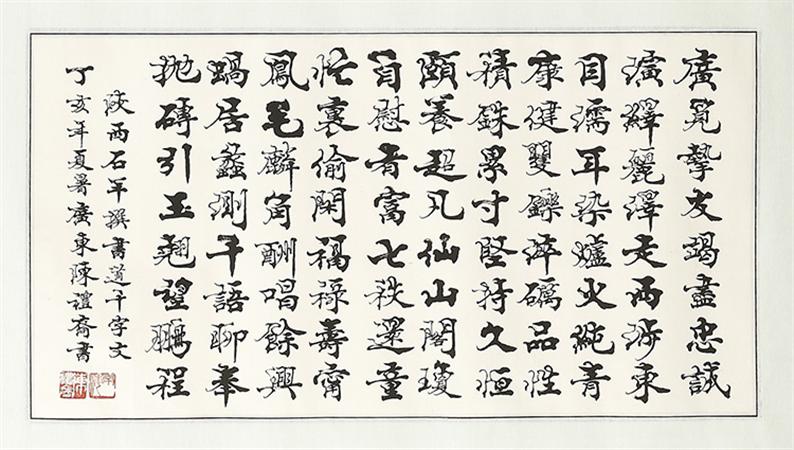 廣覓摯友竭盡忠誠
演繹麗澤走西涉東
目濡耳染爐火純青
康健矍鑠淬礪品性
積銖累寸堅持久恒
頤養超凡仙山閣瓊
自慰耆富七秩還童
忙裏偷閑福祿壽甯
鳳毛麟角酬唱餘興
蝸居蠡測千語聊奉
抛磚引玉翹望鵬程
陝西石羊撰書道千字文
丁亥年夏暑廣東陳禮齋書